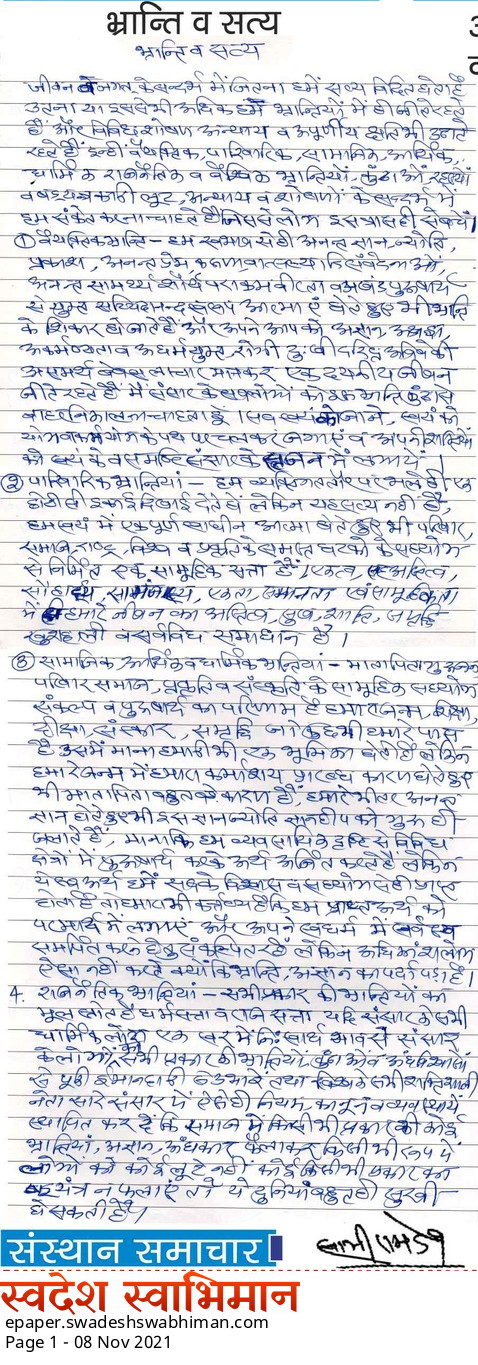 भ्रान्ति व सत्य
भ्रान्ति व सत्य
जीवन व जगत के सन्दर्भ में जितना हमें सत्य विदित होता है
उतना या इससे भी अधिक हम भ्रान्तियों में ही जीते रहते
हैं और विविध शोषण अन्याय व अपूर्णीय क्षति भी उठाते
रहते हैं इन्हीं वैयक्तिक, पारिवारिक, सामाजिक, आर्थिक,
धार्मिक राजनैतिक व वैश्विक भ्रान्तियों,
व षड्यन्त्रकारी लूट, अन्याय व शोषणों के सन्दर्भ में
हम संकेत करना चाहते हैं जिससे लोग इस त्रास से बच सकें।
① वैयक्तिक भ्रान्ति - हम स्वभाव से ही अनन्त ज्ञान, ज्योति,
प्रकाश, अनन्त प्रेम, करुणा, वात्सल्यादि संवेदनाओं,
अनन्त सामर्थ्य शौर्य पराक्रम वीरता व अखंड पुरुषार्थ
से युक्त सच्चिदानन्द स्वरूप आत्मा एं होते हुए भी भ्रान्ति
के शिकार हो जाते हैं और अपने आपको अज्ञान, अश्रद्धा,
अकर्मण्यता व अधर्म युक्त, रोगी दुःखी दरिद्र अविवेकी
असमर्थ बेबस लाचार मानकर एक दयनीय जीवन
जीते रहते हैं मैं संसार के सब लोगों को इस भ्रान्ति
बाहर निकालना चाहता हूं। सब स्वयं को जानें, स्वयं को
योग व कर्मयोग के पथ पर चलकर जगाएं व अपनी शक्तियों
को स्वयं के व समष्टि संसार के सृजन में लगायें।
② पारिवारिक भ्रान्तियां - हम व्यक्तिगत तौर पर भले ही एक
छोटी सी इकाई दिखाई देते हों लेकिन यह सत्य नहीं है,
हम स्वयं में एक पूर्ण स्वाधीन आत्मा होते हुए भी परिवार,
समाज, राष्ट्र, विश्व व प्रकृति के समस्त घटकों के सहयोग
से निर्मित एक सामूहिक सत्ता हैं। एकत्व, सह अस्तित्व,
सौहार्द्र, सामंजस्य, एकता, समानता एवं सामूहिकता
में हमारे जीवन का अस्तित्व, सुख, शान्ति, समृद्धि
खुशहाली व सर्वविध समाधान है।
③ सामाजिक, आर्थिक व धार्मिक भ्रान्तियां - माता पिता गुरुजन
परिवार समाज, प्रकृति व संस्कृति के सामूहिक सहयोग
संकल्प व पुरुषार्थ का परिणाम है हमारा जन्म, शिक्षा,
दीक्षा, संस्कार, समृद्धि जो कुछ भी हमारे पास
है उसमें माना हमारी भी एक भूमिका होती है लेकिन
हमारे जन्म में हमारा कर्माशय प्रारब्ध कारण होते हुए
भी माता पिता बहुत बड़े कारण हैं, हमारे भीतर अनन्त
ज्ञान होते हुए भी इस ज्ञान ज्योति ज्ञान दीप को गुरु ही
जलाते हैं, माना कि हम व्यवसायिक दृष्टि से विविध
क्षेत्रों में पुरुषार्थ करके अर्थ अर्जित करते हैं लेकिन
ये सब अर्थ हमें सबके विश्वास व सहयोग से ही प्राप्त
होता है तो हमारा भी कर्तव्य है कि हम प्राप्त अर्थ को
परमार्थ में लगाएं और अपने स्वधर्म में सर्वस्व
समर्पित करने हेतु संकल्पित रहें लेकिन अधिकांश लोग
ऐसा नहीं करते क्योंकि भ्रान्ति, अज्ञान का पर्दा पड़ा है।
4. राजनैतिक भ्रान्तियां - सभी प्रकार की भ्रान्तियों का
मूल स्रोत है धर्म सत्ता व राज सत्ता यदि संसार के सभी
धार्मिक लोग एक स्वर में निःस्वार्थ भाव से संसार
के लोगों को सभी प्रकार की भ्रान्तियों, व अंधविश्वासों
से पूरी ईमानदारी से उभारें तथा विश्व के सभी शक्तिशाली
नेता सारे संसार में ऐसे ही नियम, कानून व व्यवस्थायें
स्थापित कर दें कि समाज में किसी भी प्रकार की कोई
भ्रान्तियां, अज्ञान, अंधकार फैलाकर किसी भी रूप में
लोगों को कोई लूटे नहीं कोई किसी भी प्रकार का
षड्यंत्र न फैलाएं तो ये दुनियां बहुत ही सुखी
हो सकती है।
स्वामी रामदेव
संस्थान समाचार
स्वदेश स्वाभिमान
epaper.swadeshswabhiman.com
Page 1 - 08 Nov 2021